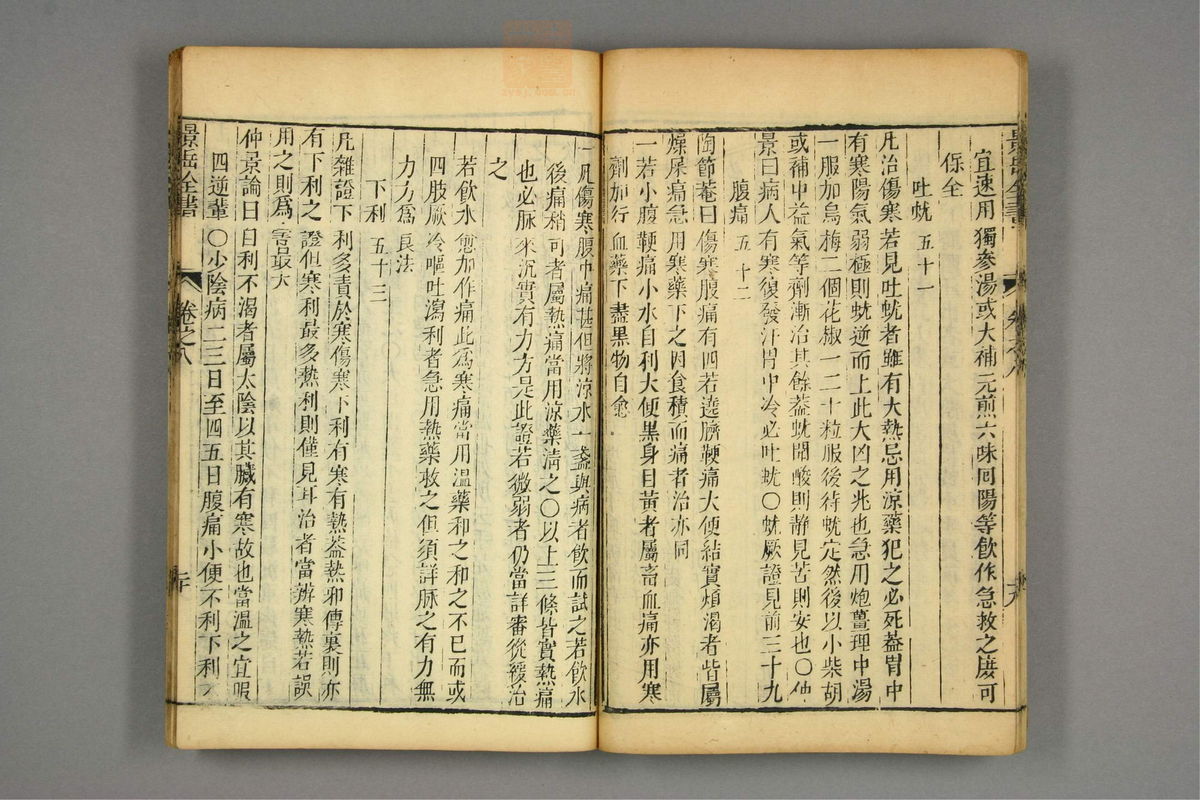 宜速用獨參湯或大補元煎六味囘陽等飲作急救之庻可
保全
吐蚘 五十一
凡治傷寒若見吐蚘者雖有大熱忌用涼藥犯之必死葢胃中
有寒陽氣弱極則蚘逆而上此大凶之兆也急用炮薑理中湯
一服加烏梅二個花椒一二十粒服後待蚘定然後以小柴胡
或補中益氣等劑漸治其餘葢蚘聞酸則静見苦則安也○仲
景曰病人有寒復發汗胃中冷必吐蚘○蚘厥證見前三十九
腹痛 五十二
陶節菴曰傷寒腹痛有四若遶臍鞕痛大便結實煩渴者皆屬
燥屎痛急用寒藥下之因食積而痛者治亦同
一若小腹鞕痛小水自利大便黒身目黃者屬畜血痛亦用寒
劑加行血藥下盡黒物自愈
一凡傷寒腹中痛甚但將涼水一盞與病者飲而試之若飲水
後痛稍可者屬熱痛當用涼藥清之○以上三條皆實熱痛
也必脉來沉實有力方是此證若微弱者仍當詳審從緩治
之
若飲水愈加作痛此爲寒痛當用溫藥和之和之不已而或
四肢厥冷嘔吐瀉利者急用熱藥救之但須詳脉之有力無
力方爲良法
下利 五十三
凡雜證下利多責於寒傷寒下利有寒有熱葢熱邪傳裏則亦
有下利之證但寒利最多熱利則僅見耳治者當辨寒熱若誤
用之則爲害最大
仲景論曰自利不渴者屬太陰以其臟有寒故也當溫之宜服
四逆輩○少陰病二三日至四五日腹痛小便不利下利
景岳全書
卷之八